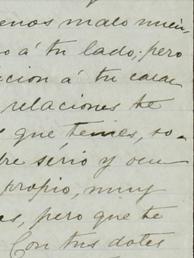 enos malo mien
o á tu lado; pero
icion á tu carac
relaciones te
que temes, so-
re serio y ocu
propio, muy
es, pero que te
Con tus dotes